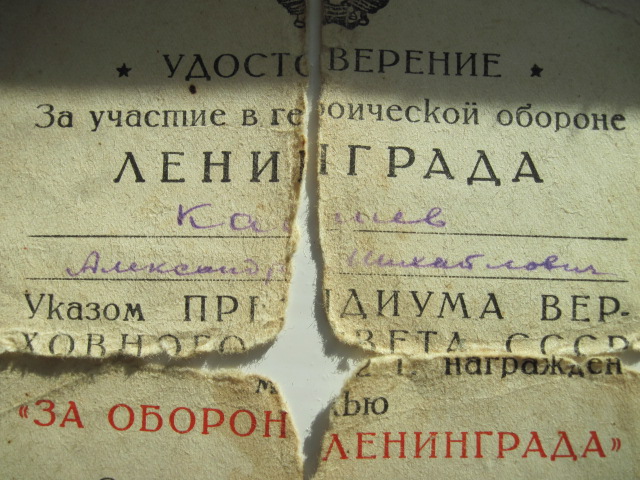 УДОСТОВЕРЕНИЕ
За участие в героической обороне
ЛЕНИНГРАДА
Александр Михайлович
Указом ПРЕЗИДИУМА ВЕР-
ХОВНОГО СОВЕТА СССР
награжден
«ЗА ОБОРОНУ ЛЕНИНГРАДА»